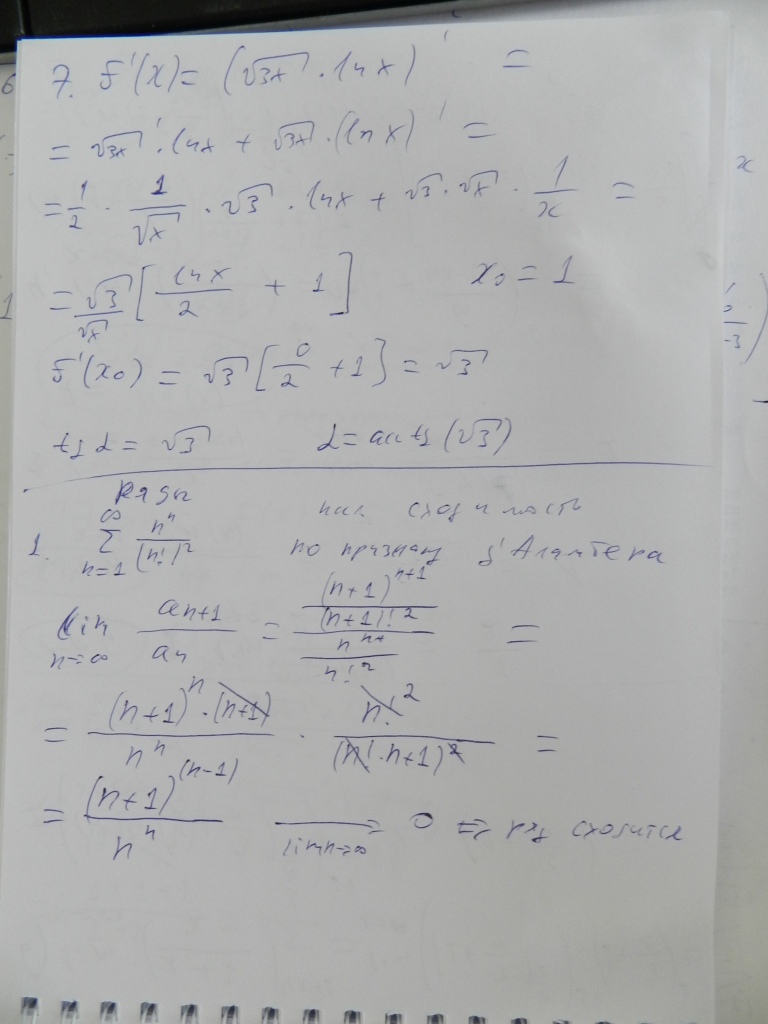 7. f'(x) = (√3x · ln x)' =
= √3x' · ln x + √3x · (ln x)' =
= 1/2 · 1/√x · √3 · ln x + √3 · √x · 1/x =
= √3/√x [ln x/2 + 1] x₀ = 1
f'(x₀) = √3 [0/2 + 1] = √3
tg α = √3 α = arctg (√3)
Ряды
1. ∞ Σ n=1 nⁿ/(n!)² на сходимость
по признаку д'Аламбера
lim n→∞ aₙ₊₁/aₙ = ((n+1)ⁿ⁺¹/(n+1)!²)/(nⁿ/n!²) =
= (n+1)ⁿ · (n+1)/nⁿ · n!²/(n! · n+1)² =
= (n+1)⁽ⁿ⁻¹⁾/nⁿ → lim n→∞ 0 ⇒ ряд сходится